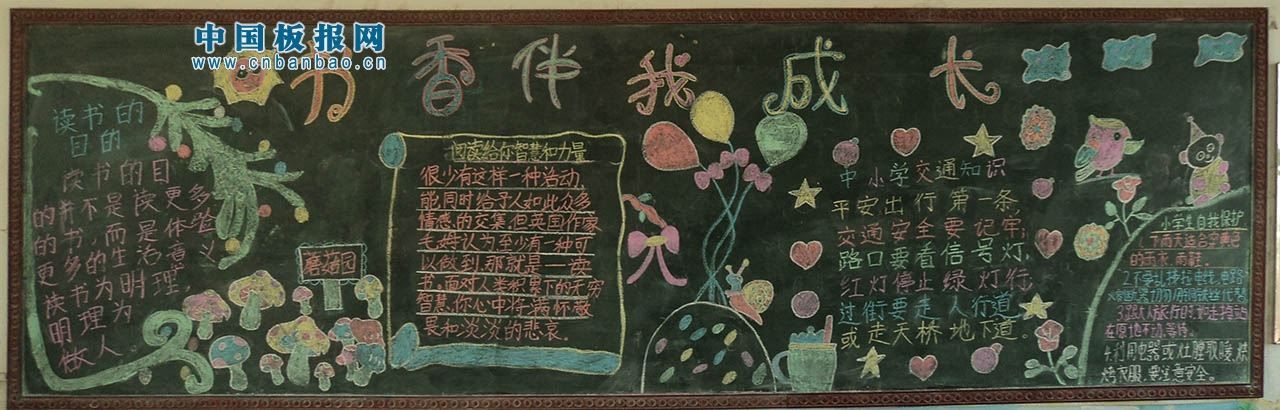 中国板报网
www.cnbanbao.cn
力香伴我成长
读书的
目的
读书的目
的并不是读更多
的书,而是体验
更多的生活意义
读书为明理,
明理为
做人
蘑菇园
阅读给你智慧和力量
很少有这样一种活动,
能同时给予人如此众多
情感的交集,但英国作家
毛姆认为至少有一种可
以做到,那就是一读
书。面对人类积累下的无穷
智慧,你心中将满怀敬
畏和淡淡的悲哀。
中小学交通知识
平安出行第一条
交通安全要记牢;
路口要看信号灯,
红灯停止绿灯行,
过街要走人行道,
或走天桥地下道。
小学生自我保护
1.下雨天
的雨衣、雨鞋。
2.不要乱接拉电线,电路
3.跟大人旅行时,
在原地不动,等待。
4.利用电器或灶膛取暖、烘
烤衣服,要注意安全。